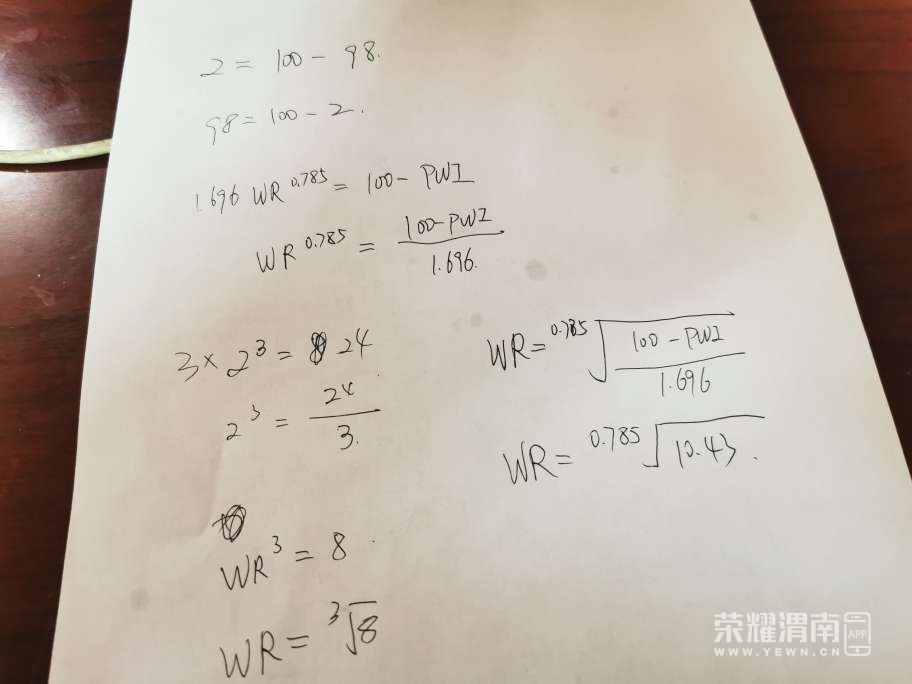 2 = 100 - 98.
98 = 100 - 2.
1.696 WR^0.785 = 100 - PWI
WR^0.785 = (100-PWI)/1.696.
3 × 2^3 = 24
2^3 = 24/3.
WR^3 = 8.
WR = ³√8
WR = ^0.785√((100 - PWI)/1.696)
WR = ^0.785√10.43.
荣耀渭南 APP
WWW.YEWN.CN